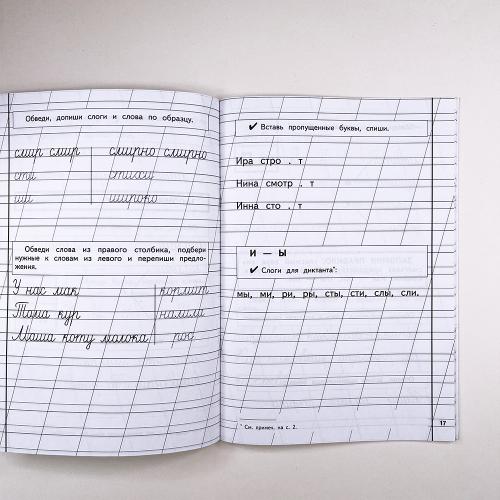 Обведи, допиши слоги и слова по образцу.
смир смир смирно смирно
сти стихи
ши широко
Обведи слова из правого столбика, подбери
нужные к словам из левого и перепиши предло-
жения.
У нас мак кормит
Тома кур налила
Маша коту молока рос
✔ Вставь пропущенные буквы, спиши.
Ира стро . т
Нина смотр . т
Инна сто . т
И — Ы
✔ Слоги для диктанта*:
мы, ми, ри, ры, сты, сти, слы, сли.
* См. примеч. на с. 2.
17